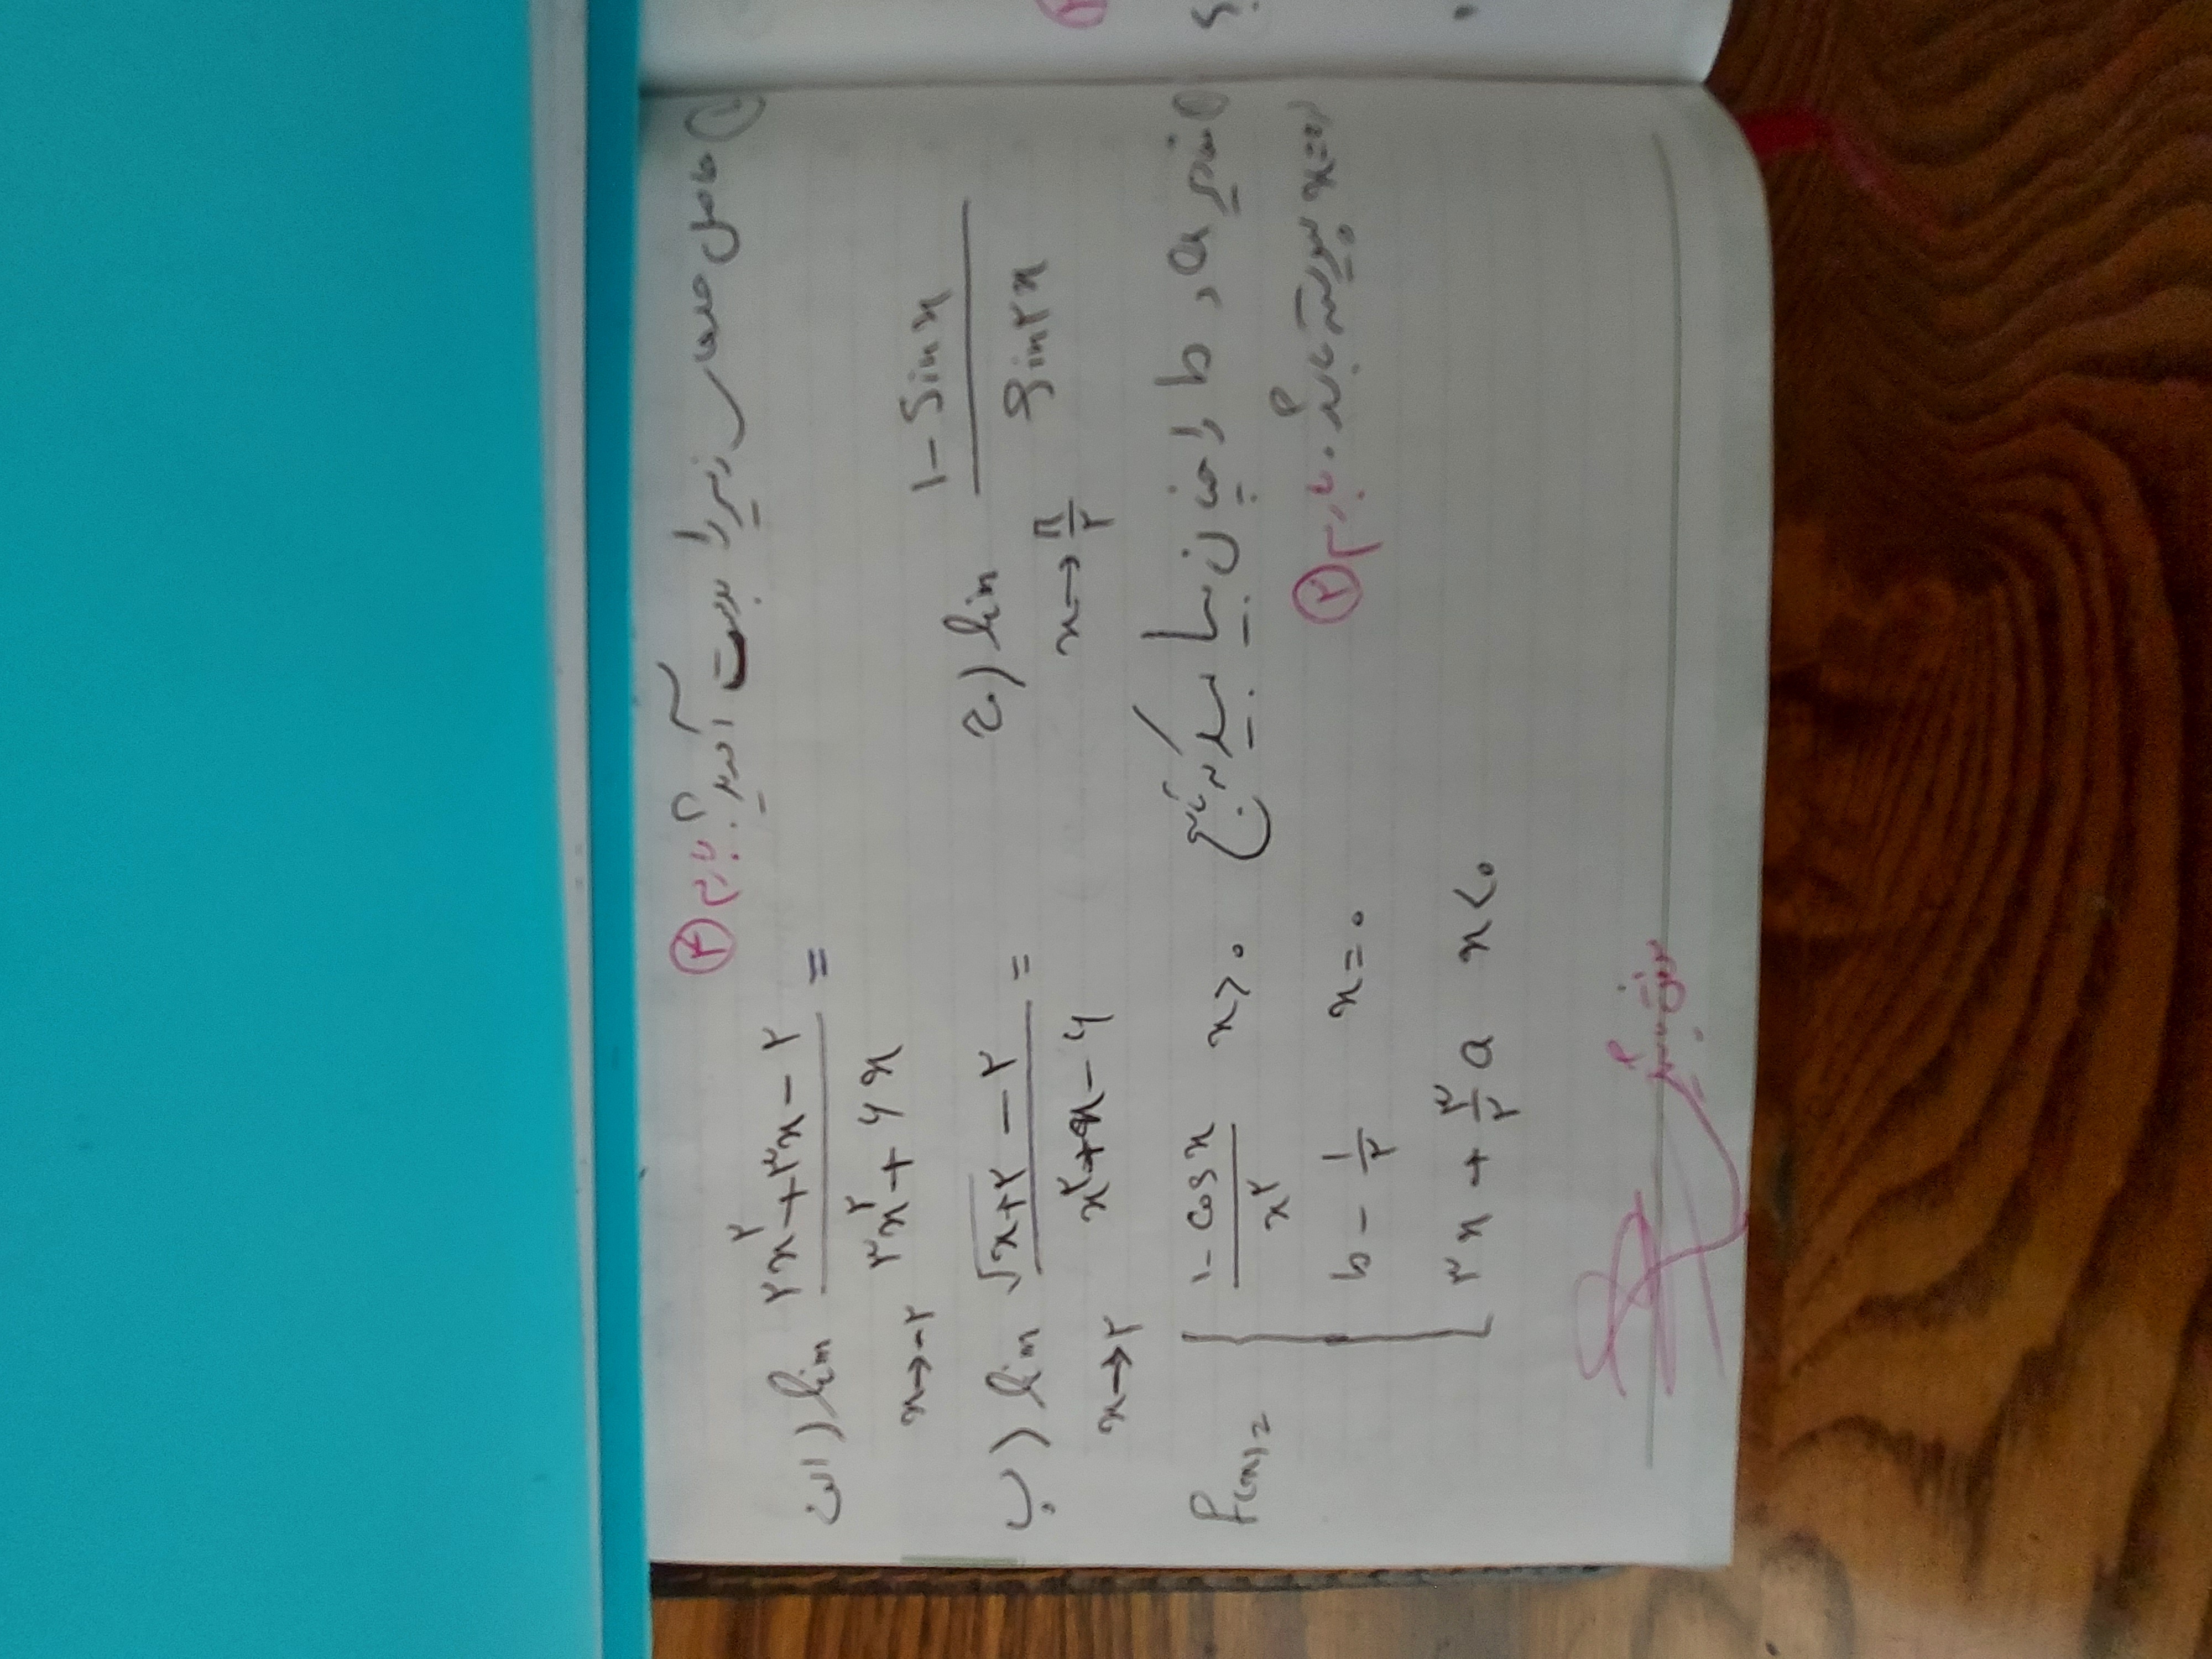 ۱) حاصل حدهای زیر را بدست آورید؟ بارم ۳
الف) lim x→-۲ (۲x^۲+۳x-۲)/(۳x^۲+۶x) =
ب) lim x→۲ (√(x+۲) - ۲)/(x^۲+x-۶) =
ج) lim x→π/۲ (۱-Sin x)/(Sin ۲x)
مقادیر a و b را چنان بیابید که تابع
x=۰ پیوسته باشد. بارم ۲
f(x)= { (۱-cos x)/x^۲ x>۰
b - ۱/۲ x=۰
۳x + ۳/۲ a x<۰
موفق باشید